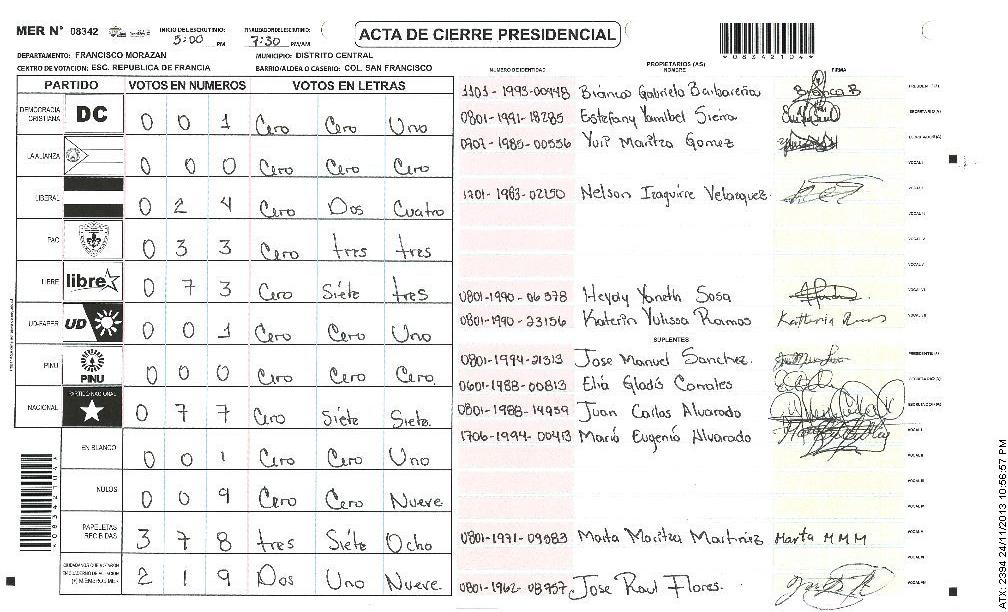 MER N° 08342 INICIO DE ESCRUTINIO: 5:00 PM FINALIZACION ESCRUTINIO: 7:30 PM/AM
ACTA DE CIERRE PRESIDENCIAL
*08342104*
DEPARTAMENTO: FRANCISCO MORAZAN MUNICIPIO: DISTRITO CENTRAL
CENTRO DE VOTACION: ESC. REPUBLICA DE FRANCIA BARRIO/ALDEA O CASERIO: COL. SAN FRANCISCO
PARTIDO VOTOS EN NUMEROS VOTOS EN LETRAS
DEMOCRACIA CRISTIANA DC 0 0 1 Cero Cero Uno
LA ALIANZA 0 0 0 Cero Cero Cero
LIBERAL 0 2 4 Cero Dos Cuatro
PAC 0 3 3 Cero tres tres
LIBRE libre 0 7 3 Cero Siete tres
UD-FAPER UD 0 0 1 Cero Cero Uno
PINU PINU 0 0 0 Cero Cero Cero.
NACIONAL PARTIDO NACIONAL 0 7 7 Cero Siete Siete.
EN BLANCO 0 0 1 Cero Cero Uno
NULOS 0 0 9 Cero Cero Nueve
PAPELETAS RECIBIDAS 3 7 8 tres Siete Ocho
CIUDADANOS QUE VOTARON 2 1 9 Dos Uno Nueve.
PROPIETARIOS (AS)
NUMERO DE IDENTIDAD NOMBRE FIRMA
1101-1993-00448 Bianca Gabriela Bianca B
0801-1991-18285 Estefany Yamibel Sierra
0907-1985-00556 Yuri Maritza Gomez
1701-1983-02150 Nelson Izaguirre Velasquez.
0801-1990-06578 Heydy Yaneth Sosa
0801-1990-23156 Katerin Yulissa Ramos
SUPLENTES
0801-1994-21313 Jose Manuel Sanchez.
0601-1988-00813 Elia Gladis Corrales
0801-1988-14959 Juan Carlos Alvarado
1706-1994-00413 Mario Eugenio Alvarado
0801-1971-09083 Marta Maritza Martinez Marta MMM
0801-1962-08957 Jose Raul Flores.
ATX: 2394 24/11/2013 10:56:57 PM